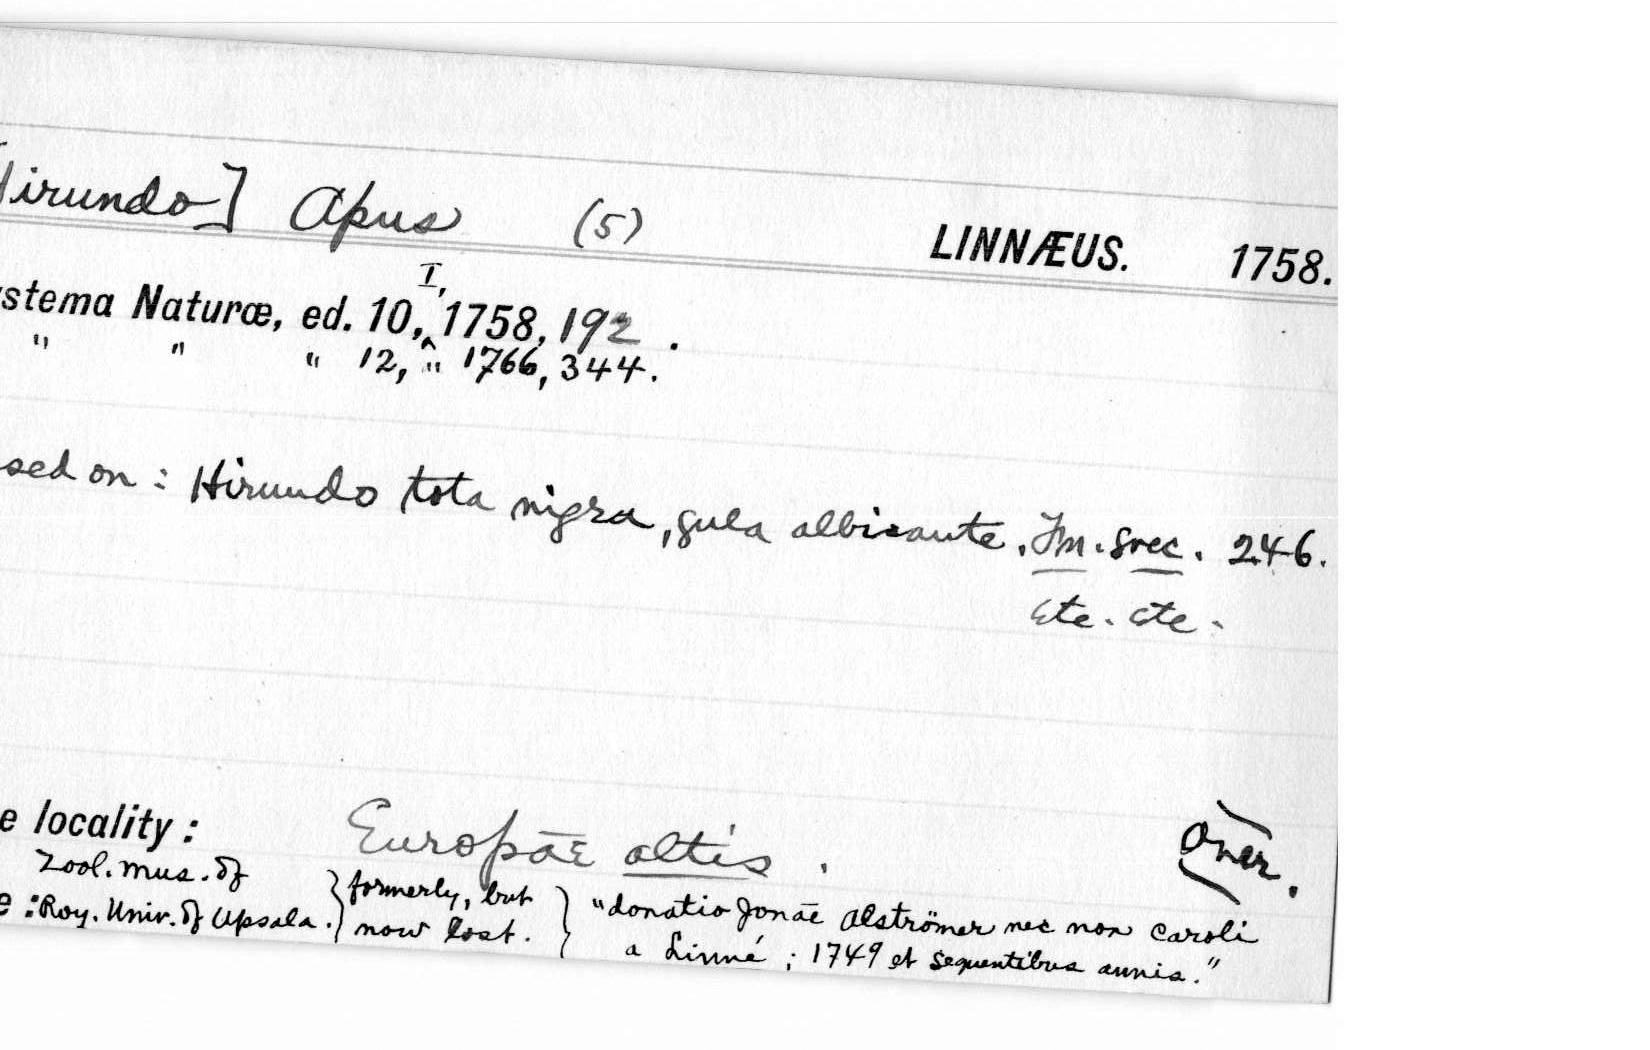 Hirundo] Apus (5) LINNÆUS. 1758.
ystema Naturæ, ed. 10, I, 1758, 192.
" " " 12, " 1766, 344.
sed on : Hirundo tota nigra, gula albicante. Fn. Svec. 246.
Etc. Etc.
e locality : Europæ altis.
Over.
Zool. Mus. of
e : Roy. Univ. of Upsala. } formerly, but
now lost. } "donatio Jonæ Alströmer nec non Caroli
a Linné ; 1749 et sequentibus annis."